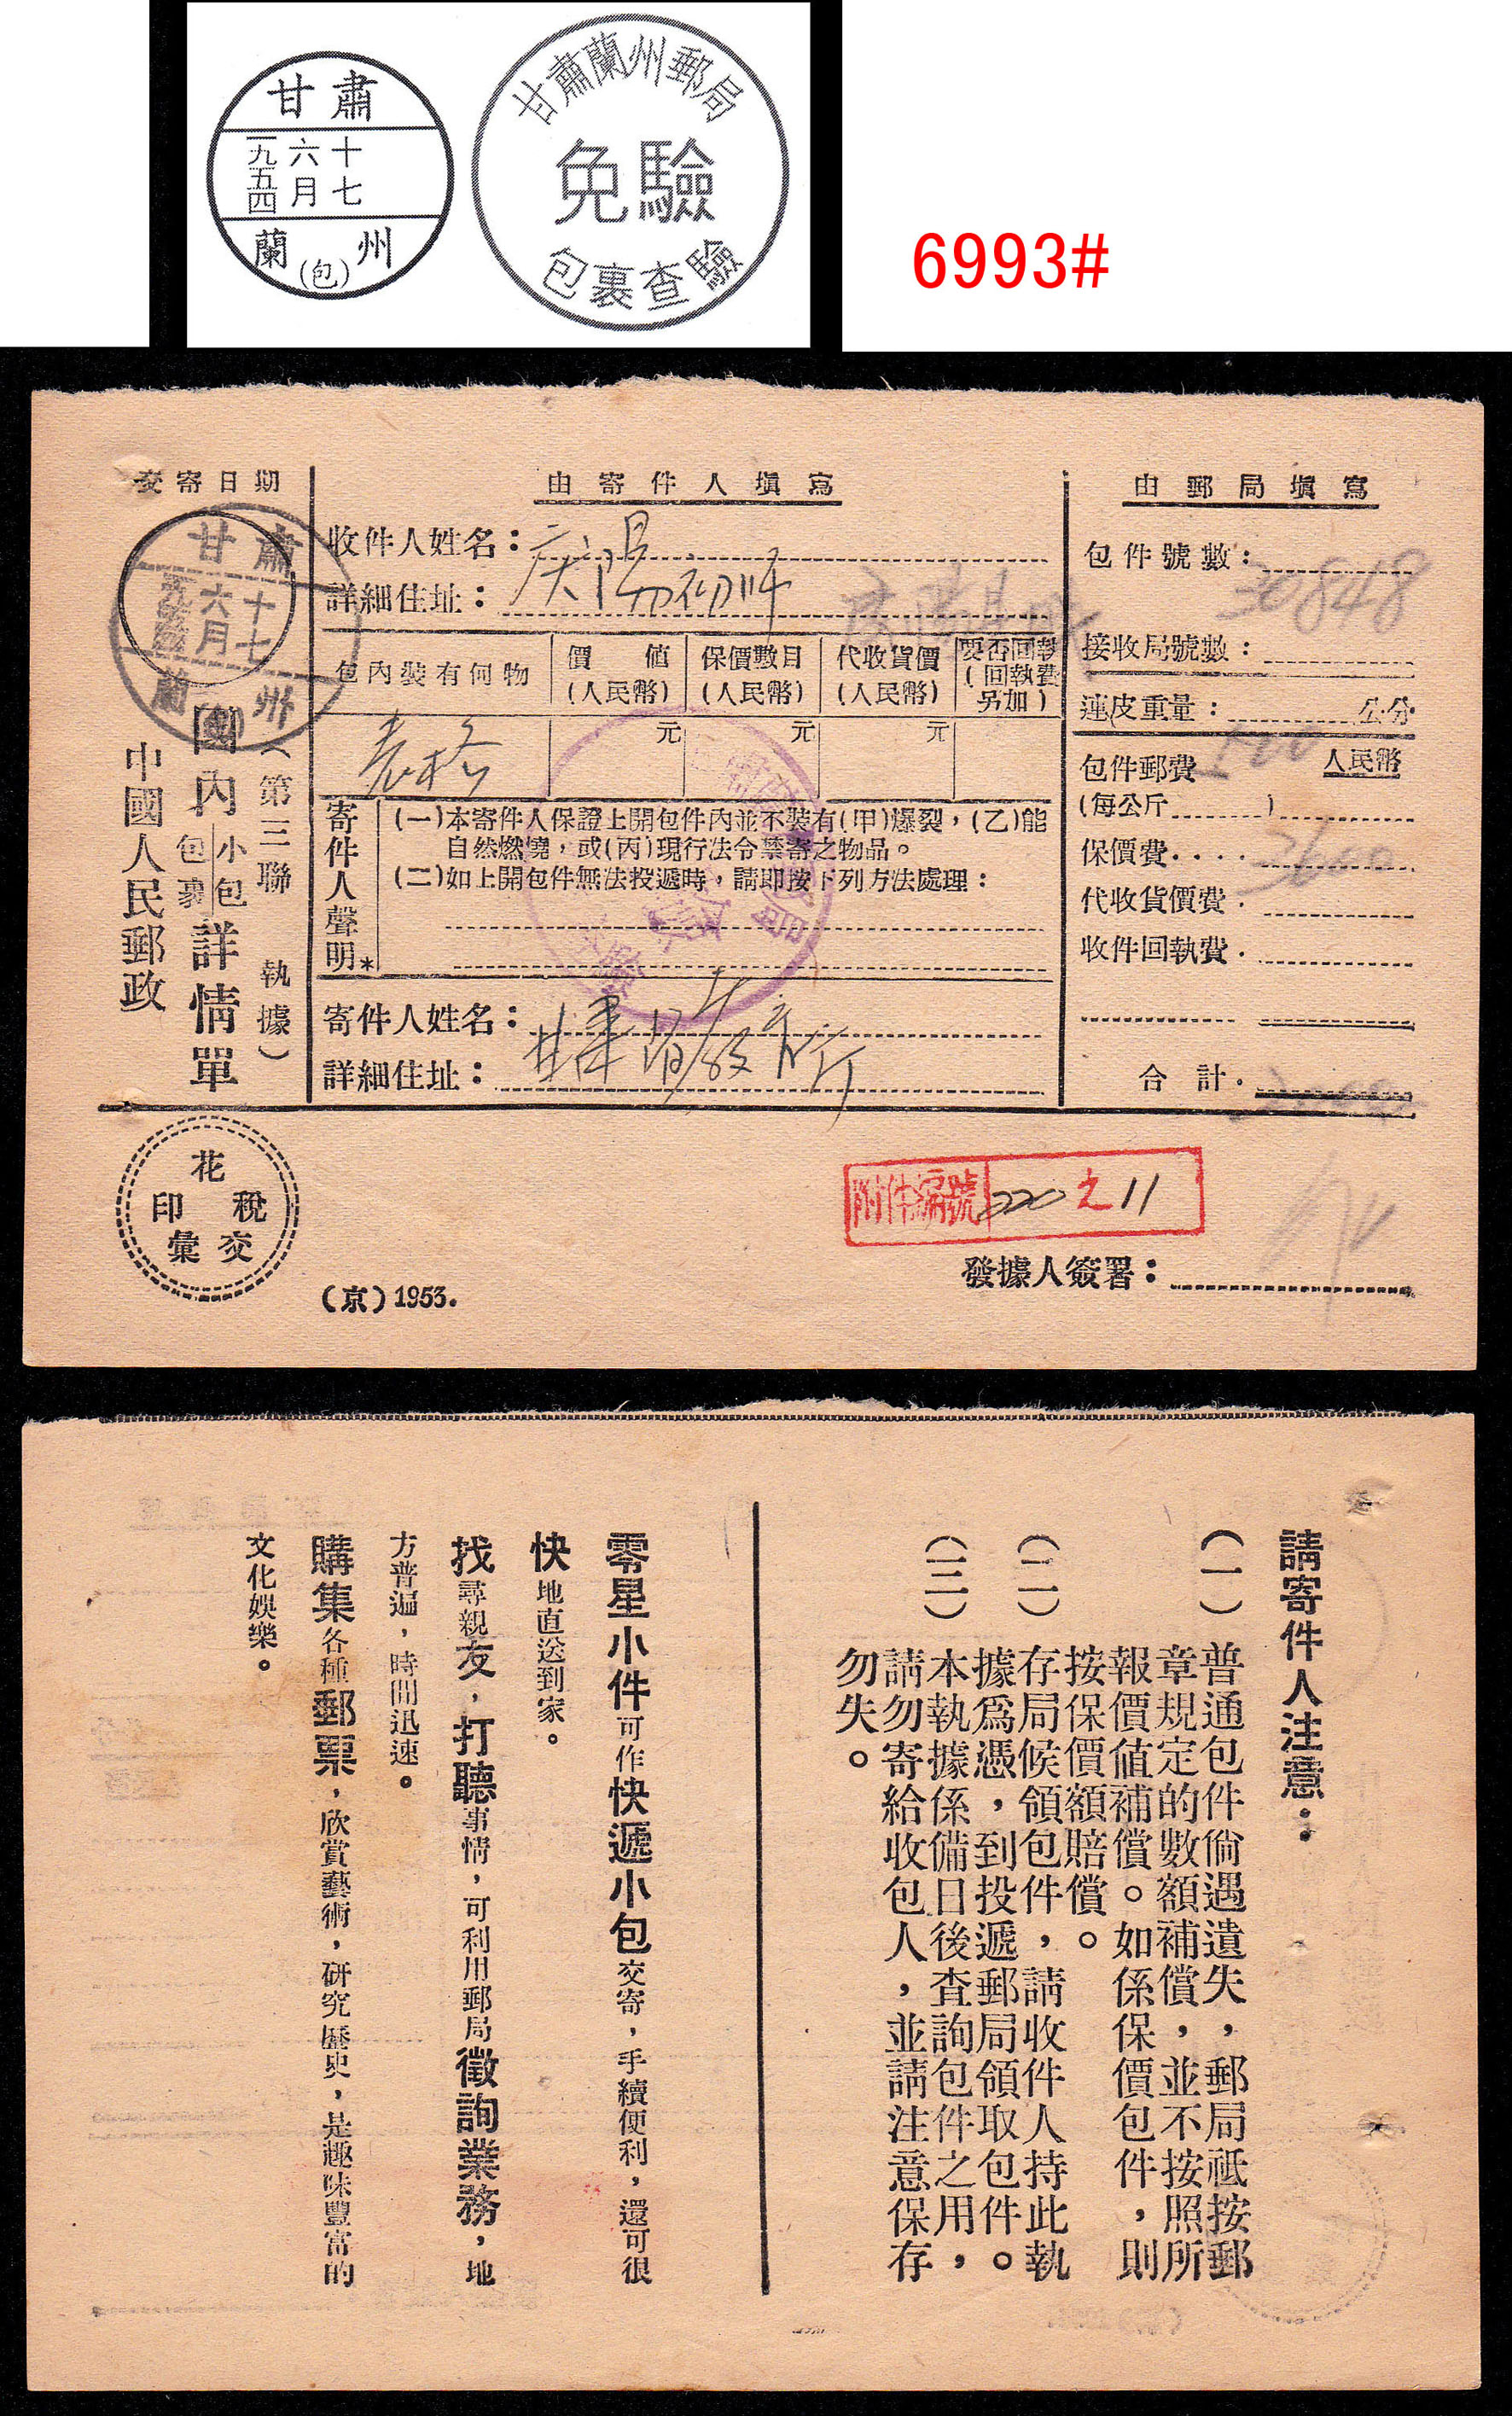 甘肅
一九五四
六月
十七
蘭州
(包)
甘肅蘭州郵局
免驗
包裹查驗
6993#
交寄日期
甘肅
六月
十七
蘭州
中國人民郵政
國內小包包裹詳情單
(第三聯 執據)
由寄件人塡寫
收件人姓名：
庆阳初师
詳細住址：
包內裝有何物
價值(人民幣)
保價數目(人民幣)
代收貨價(人民幣)
要否回執(回執費另加)
表格
元
元
元
寄件人聲明*
(一)本寄件人保證上開包件內並不裝有(甲)爆裂，(乙)能
自然燃燒，或(丙)現行法令禁寄之物品。
(二)如上開包件無法投遞時，請即按下列方法處理：
寄件人姓名：
甘肃省教育厅
詳細住址：
由郵局塡寫
包件號數：
30848
接收局號數：
連皮重量：公分
包件郵費 人民幣
(每公斤 )
保價費....
代收貨價費.
收件回執費.
合計.
印花稅彙交
(京)1953.
附件編號 220之11
發據人簽署：
請寄件人注意：
(一)普通包件倘遇遺失，郵局祗按郵
章規定的數額補償，並不按照所
報價値補償。如係保價包件，則
按保價額賠償。
(二)存局候領包件，請收件人持此執
據爲憑，到投遞郵局領取包件。
(三)本執據係備日後查詢包件之用，
請勿寄給收包人，並請注意保存
勿失。
零星小件可作快遞小包交寄，手續便利，還可很
快地直送到家。
找尋親友，打聽事情，可利用郵局徵詢業務，地
方普遍，時間迅速。
購集各種郵票，欣賞藝術，研究歷史，是趣味豐富的
文化娛樂。